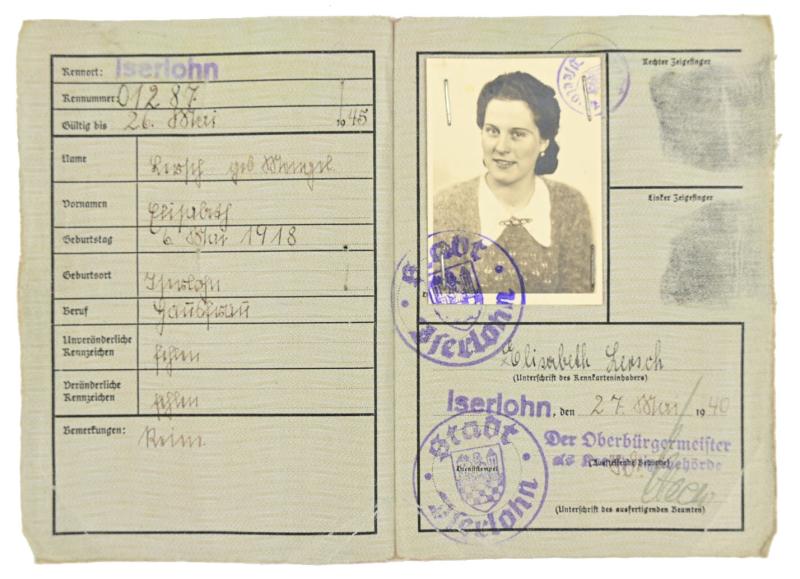 Kennort: Iserlohn
Kennummer: 01287
Gültig bis 26. Mai 1945
Name Lersch geb.
Vornamen Elisabeth
Geburtstag 6. Mai 1918
Geburtsort Iserlohn
Beruf Hausfrau
Unveränderliche Kennzeichen fehlen
Veränderliche Kennzeichen fehlen
Bemerkungen: Keine
Rechter Zeigefinger
Linker Zeigefinger
Stadt Iserlohn
Elisabeth Lersch
(Unterschrift des Kennkarteninhabers)
Iserlohn, den 27. Mai 1940
Der Oberbürgermeister
(Ausstellende Behörde)
Stadt Iserlohn
Dienststempel
(Unterschrift des ausfertigenden Beamten)